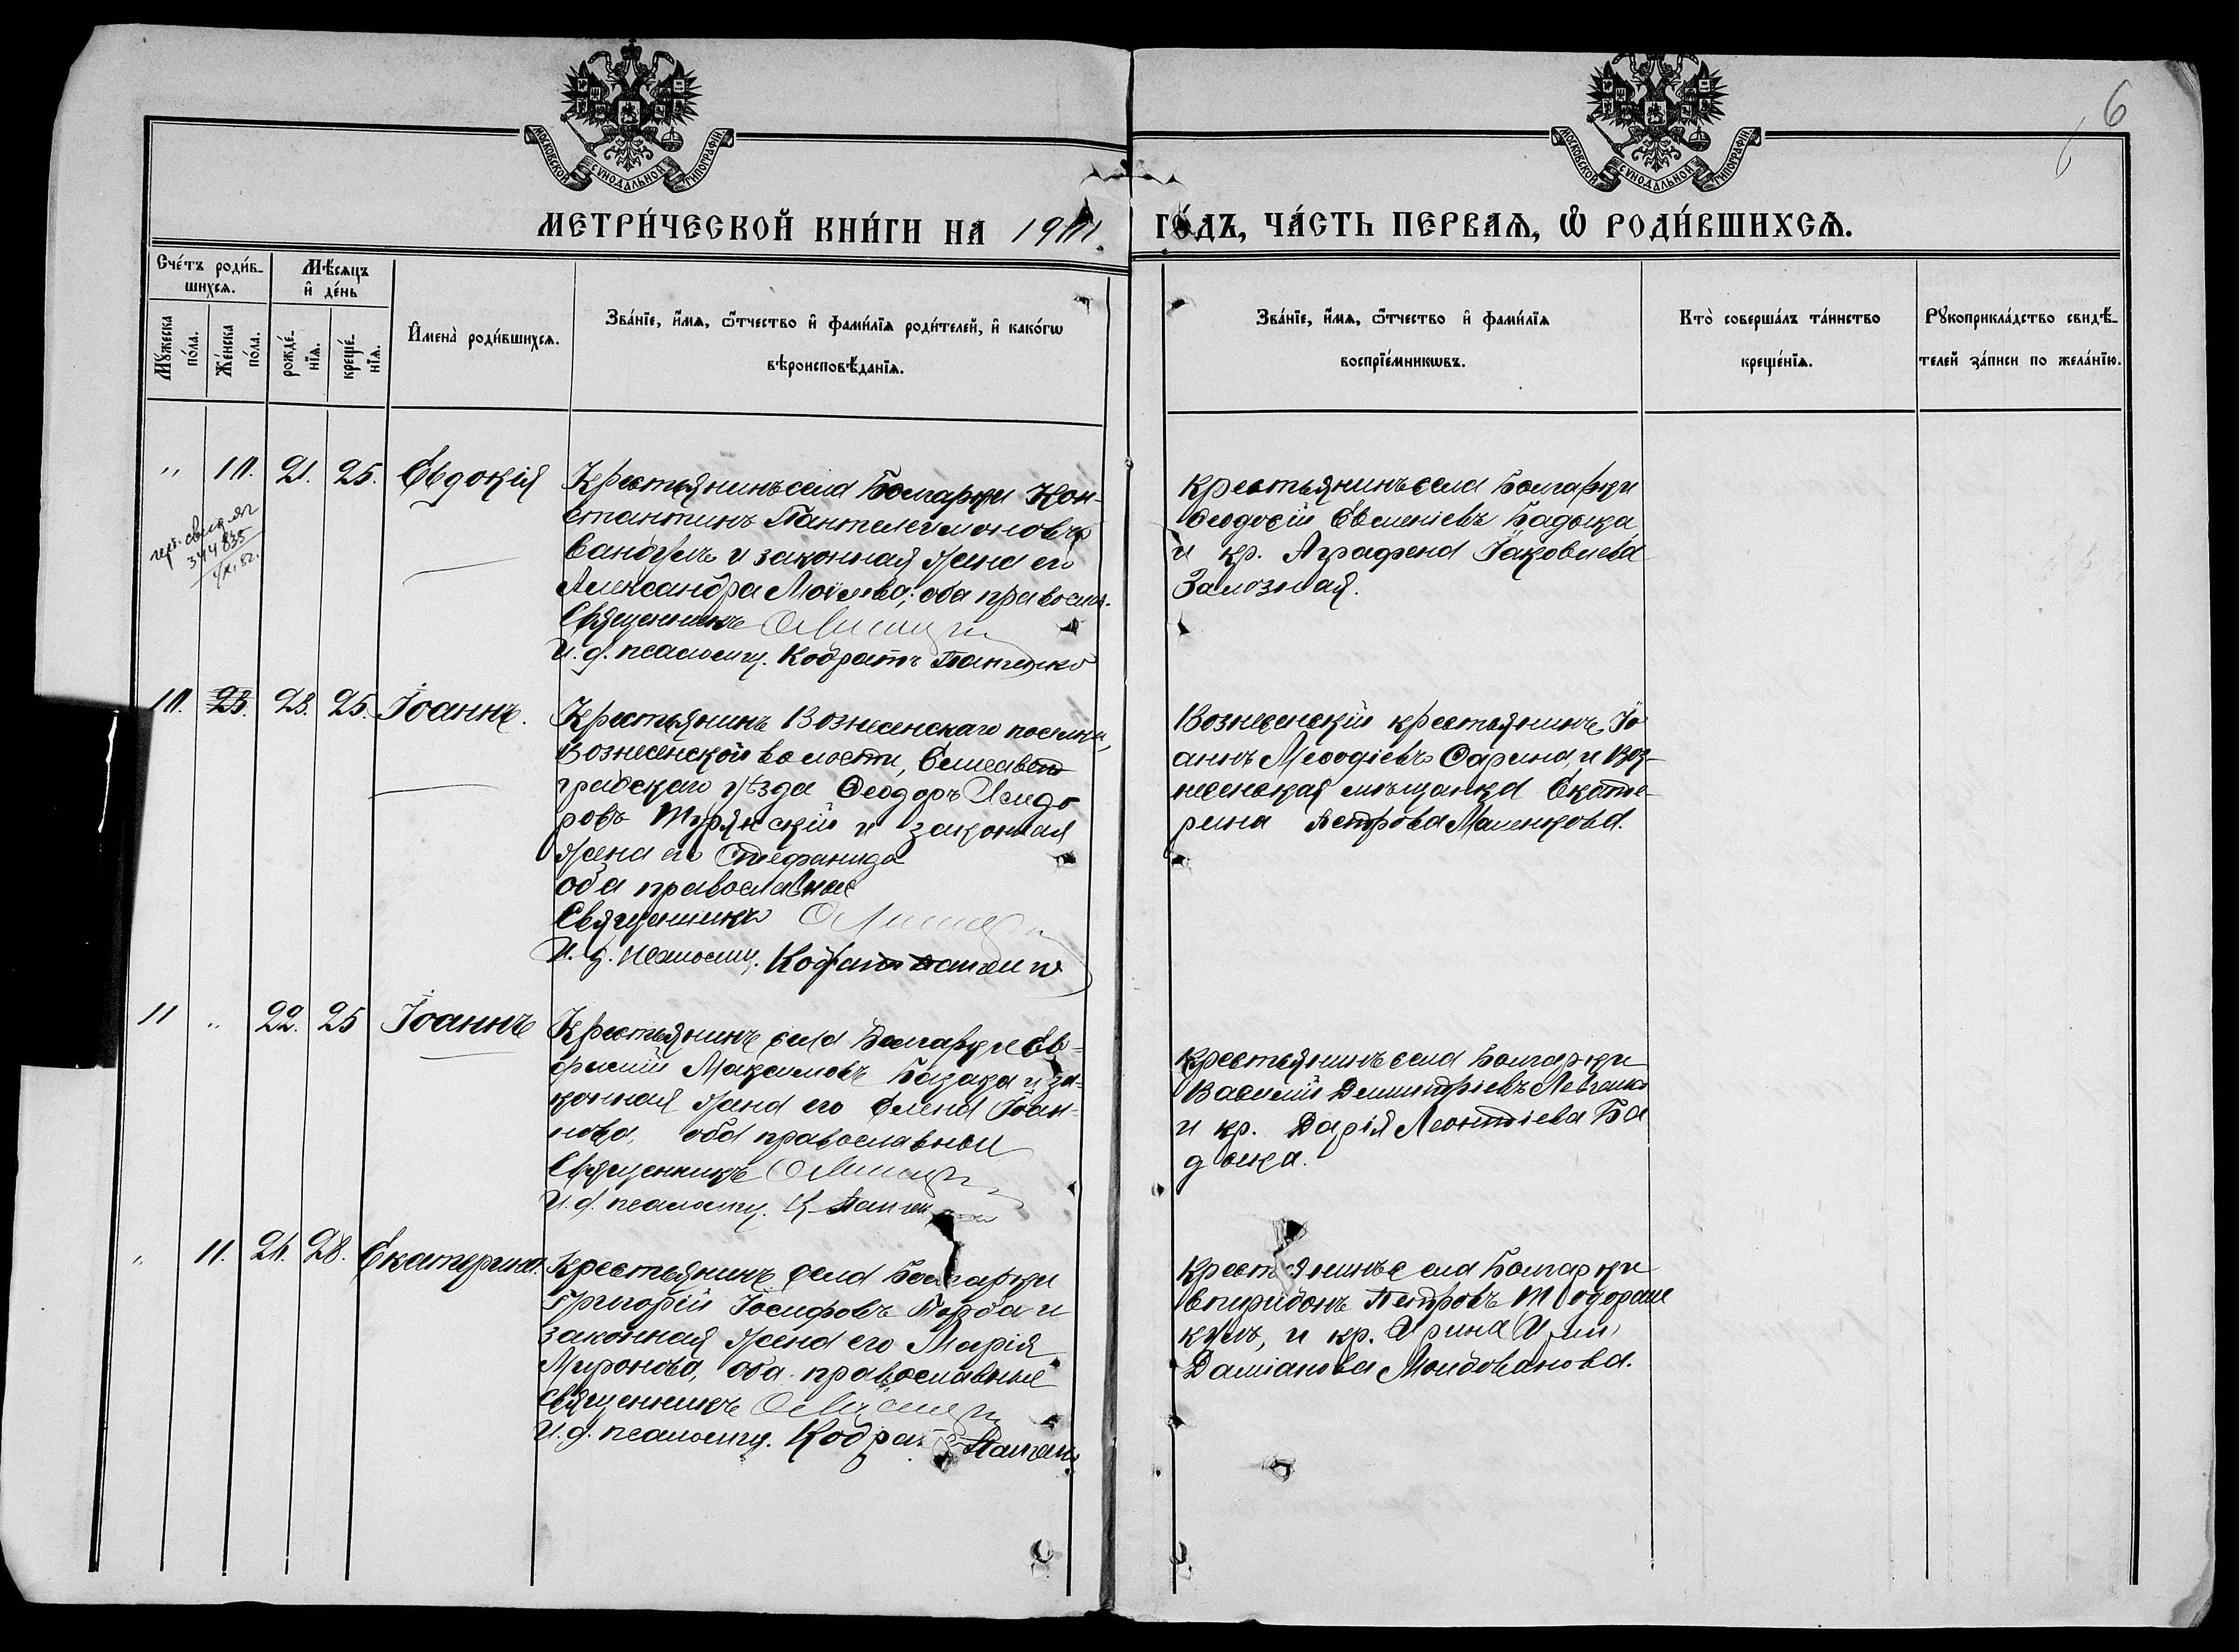 6
6
МОСКОВСКОЙ СѴНОДАЛЬНОЙ ТИПОГРАФІИ
МОСКОВСКОЙ СѴНОДАЛЬНОЙ ТИПОГРАФІИ
МЕТРИ́ЧЕСКОЙ КНИ́ГИ НА 1911. ГО́ДЪ, ЧА́СТЬ ПЕРВАѦ, Ѡ҆ РОДИ́ВШИХСѦ.
Сче́тъ роди́в-
шихсѧ.
Мѣ́сѧцъ
и҆ де́нь
Мꙋ́жеска
по́ла.
Же́нска
по́ла.
рожде́-
нїѧ.
креще́-
нїѧ.
И҆мена̀ роди́вшихсѧ.
Зва́нїе, и҆́мѧ, ѻ҆́тчество и҆ фамѝлїѧ роди́телей, и҆ како́гѡ
вѣроисповѣ́данїѧ.
Зва́нїе, и҆́мѧ, ѻ҆́тчество и҆ фамѝлїѧ
воспрїе́мникѡвъ.
Кто̀ соверша́лъ та́инство
креще́нїѧ.
Рꙋкоприкла́дство свидѣ́-
телей за́писи по жела́нїю.
" 10. 21. 25. Евдокія
344835
Крестьянинъ села Болгарки Кон-
стантинъ Пантелеимоновъ
и законная жена его
Александра Моисеева; оба правосл.
Священникъ
И. д. псаломщ. Кодратъ Панченко
крестьянинъ села Болгарки
Ѳеодосій Евменіевъ Бадыка
и кр. Аграфена Іаковлева
Залозная.
10. 23. 23. 25. Іоаннъ.
Крестьянинъ Вознесенскаго поселка,
Вознесенской волости, Елисавет
градскаго уѣзда Ѳеодоръ Исидо
ровъ Турянскій и законная
жена его Стефанида
оба православные
Священникъ
И. д. псаломщ. Кодратъ
Вознесенскій крестьянинъ Іо
аннъ Меѳодіевъ Сарина, и Воз-
несенская мѣщанка Екате-
рина Петрова Маленкова.
11 " 22. 25 Іоаннъ
Крестьянинъ села Болгарки Ев-
фимій Максимовъ Казака и за-
конная жена его Елена Іоан-
нова, оба православные
Священникъ
И. д. псаломщ. К.
крестьянинъ села Болгарки
Василій Димитріевъ Левченко
и кр. Дарія Леонтіева Ба
дыка.
" 11. 24. 28. Екатерина.
Крестьянинъ села Болгарки
Григорій Іосифовъ и
законная жена его Марія
Миронова, оба православные
Священникъ
И. д. псаломщ. Кодра
крестьянинъ села Болгарки
Спиридонъ Петровъ Тодораш
кулъ, и кр. Ирина
Даміанова Молдованова.